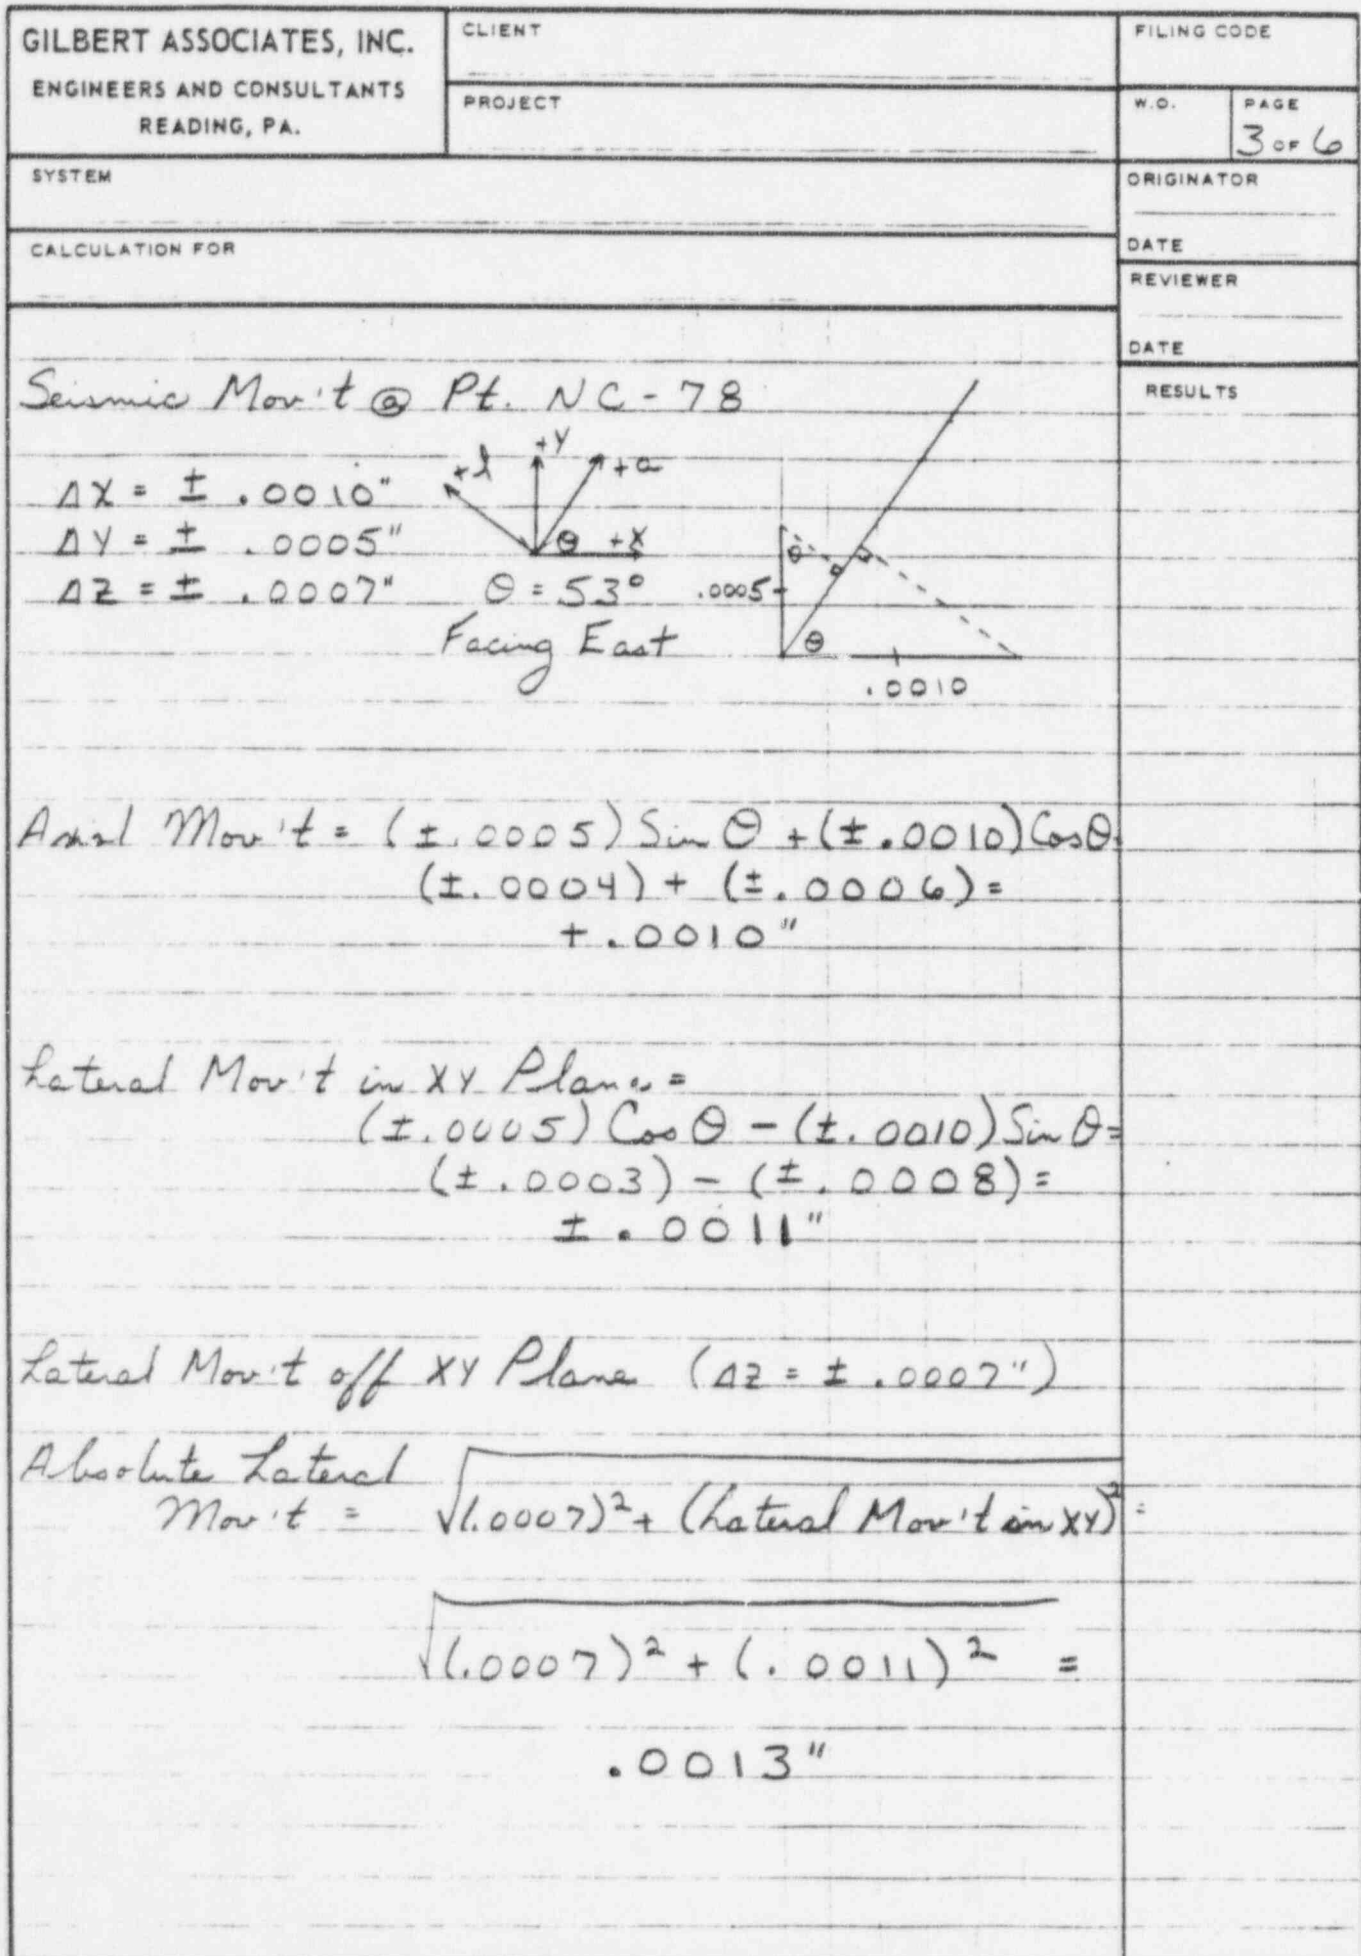 GILBERT ASSOCIATES, INC.
ENGINEERS AND CONSULTANTS
READING, PA.
CLIENT
PROJECT
FILING CODE
W.O.
PAGE
3 OF 6
SYSTEM
ORIGINATOR
DATE
CALCULATION FOR
REVIEWER
DATE
RESULTS
Seismic Mov't @ Pt. NC-78
ΔX = ± .0010"
ΔY = ± .0005"
ΔZ = ± .0007"
+l
+Y
+a
θ +X
θ = 53°
Facing East
θ
.0005
θ
.0010
Axial Mov't = (±.0005) Sin θ + (±.0010) Cos θ
(±.0004) + (±.0006) =
+.0010"
Lateral Mov't in XY Plane =
(±.0005) Cos θ - (±.0010) Sin θ =
(±.0003) - (±.0008) =
±.0011"
Lateral Mov't off XY Plane (ΔZ = ± .0007")
Absolute Lateral
Mov't = √(.0007)² + (Lateral Mov't in XY)² =
√(.0007)² + (.0011)² =
.0013"